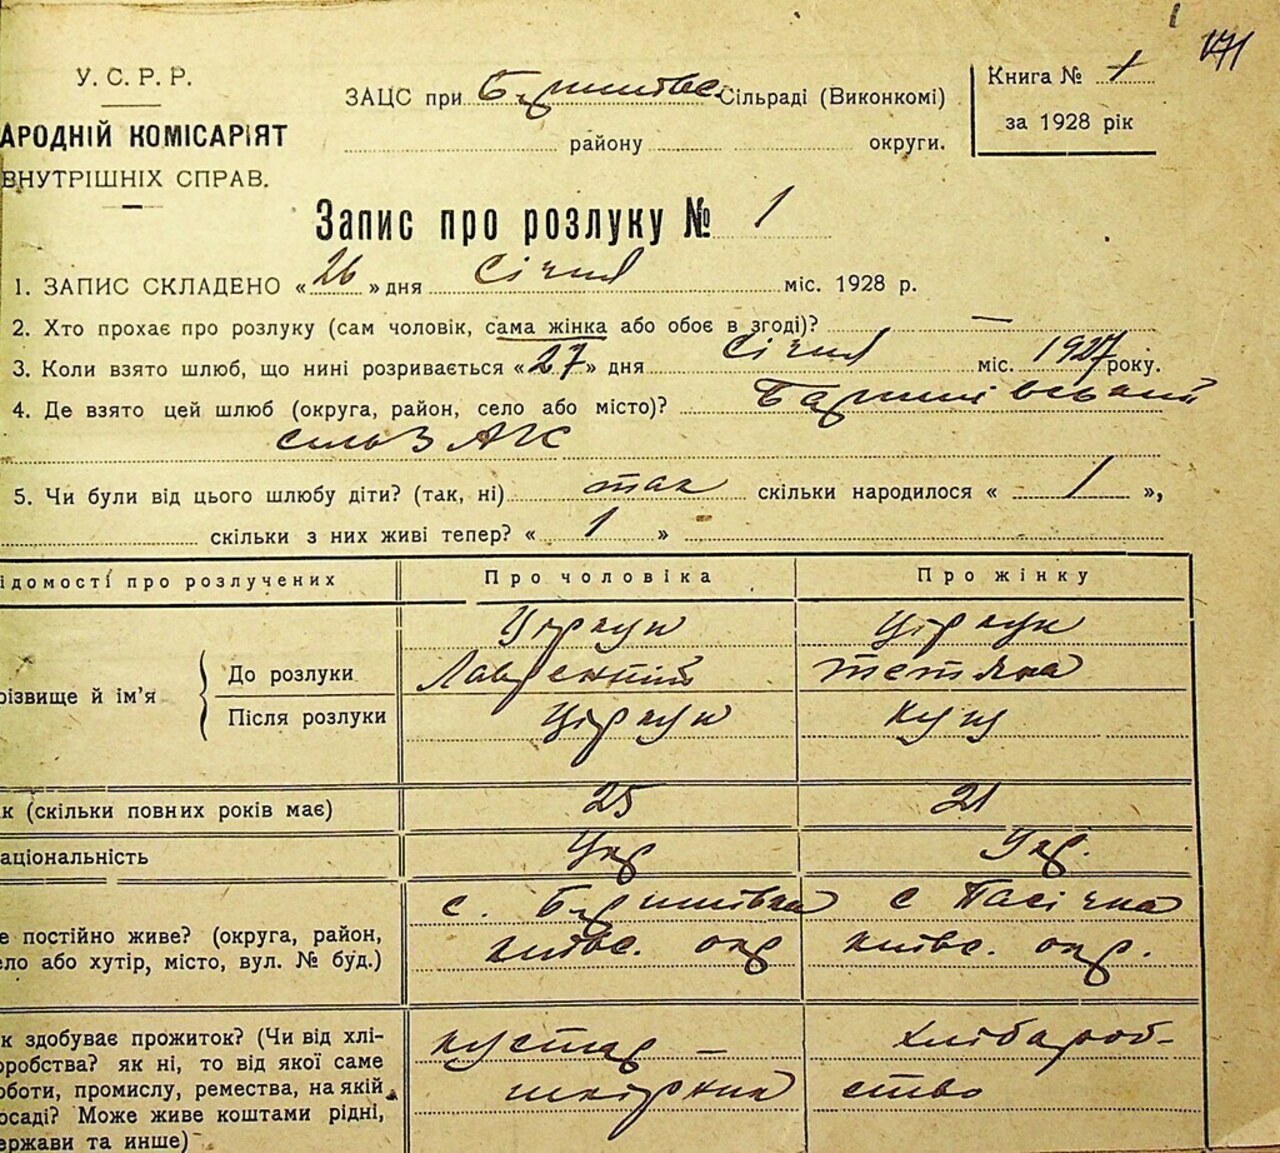 171
У. С. Р. Р.
АРОДНІЙ КОМІСАРІЯТ
ВНУТРІШНІХ СПРАВ.
ЗАЦС при Баришівс. Сільраді (Виконкомі)
району округи.
Книга № 1
за 1928 рік
Запис про розлуку № 1
1. ЗАПИС СКЛАДЕНО «26» дня Січня міс. 1928 р.
2. Хто прохає про розлуку (сам чоловік, сама жінка або обоє в згоді)? —
3. Коли взято шлюб, що нині розривається «27» дня Січня міс. 1927 року.
4. Де взято цей шлюб (округа, район, село або місто)? Баришівський
сільЗАГС
5. Чи були від цього шлюбу діти? (так, ні) так скільки народилося « 1 »,
скільки з них живі тепер? « 1 »
ідомості про розлучених Про чоловіка Про жінку
різвище й ім'я
До розлуки Ціркун Лаврентій Ціркун Тетяна
Після розлуки Ціркун Куц
к (скільки повних років має) 25 21
аціональність Укр Укр.
е постійно живе? (округа, район, с. Баришівка с Пасічна
ело або хутір, місто, вул. № буд.) київс. окр київс. окр.
к здобуває прожиток? (Чи від хлі- кустар – хлібароб-
оробства? як ні, то від якої саме
оботи, промислу, ремества, на якій шкірник ство
осаді? Може живе коштами рідні,
ержави та инше)